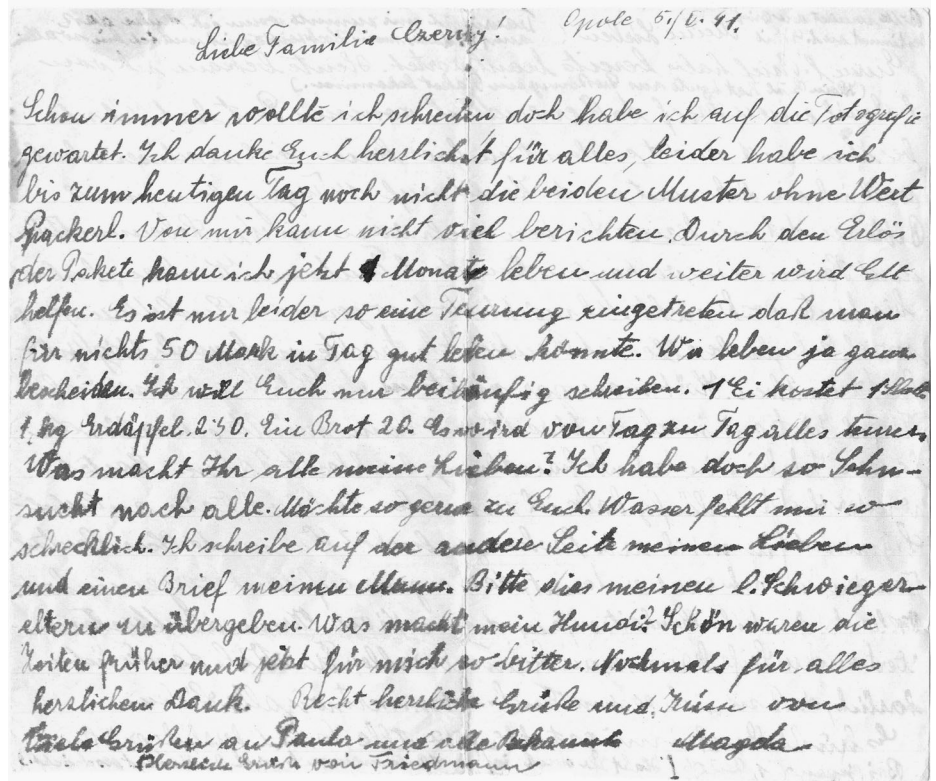 Opole 5./V. 41.
Liebe Familie Czerny!
Schon immer wollte ich schreiben doch habe ich auf die Fotografie
gewartet. Ich danke Euch herzlichst für alles, leider habe ich
bis zum heutigen Tag noch nicht die beiden Muster ohne Wert
Packerl. Von mir kann nicht viel berichten. Durch den Erlös
der Pakete kann ich jetzt 1 Monat leben und weiter wird Gott
helfen. Es ist nur leider so eine Teurung eingetreten daß man
für nichts 50 Mark in Tag gut leben könnte. Wir leben ja ganz
bescheiden. Ich will Euch nur beiläufig schreiben. 1 Ei kostet 1 Mark
1 kg Erdäpfel 2.50. Ein Brot 20. Es wird von Tag zu Tag alles teurer.
Was macht Ihr alle meine Lieben? Ich habe doch so Sehn-
sucht nach alle. Möchte so gerne zu Euch. Wasser fehlt mir so
schrecklich. Ich schreibe auf der andere Seite meinen Lieben
und einen Brief meinen Mann. Bitte dies meinen l. Schwieger-
eltern zu übergeben. Was macht mein Hundi? Schön waren die
Zeiten früher und jetzt für mich so bitter. Nochmals für alles
herzlichen Dank. Recht herzliche Grüße und Küsse von
viele Grüßen an Paula und alle Bekannte Magda
Herzliche Grüße von Friedmann